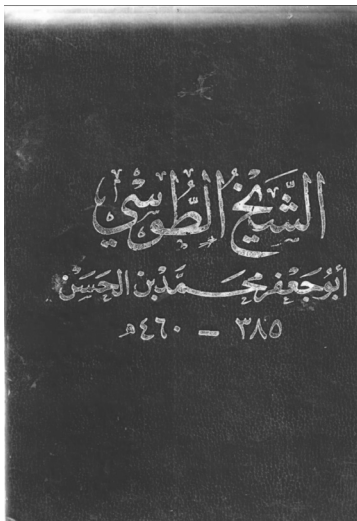 الشَّيْخُ الطُّوسِي
أَبُو جَعْفَر مُحَمَّد بْن الحَسَن
٣٨٥ - ٤٦٠ هـ